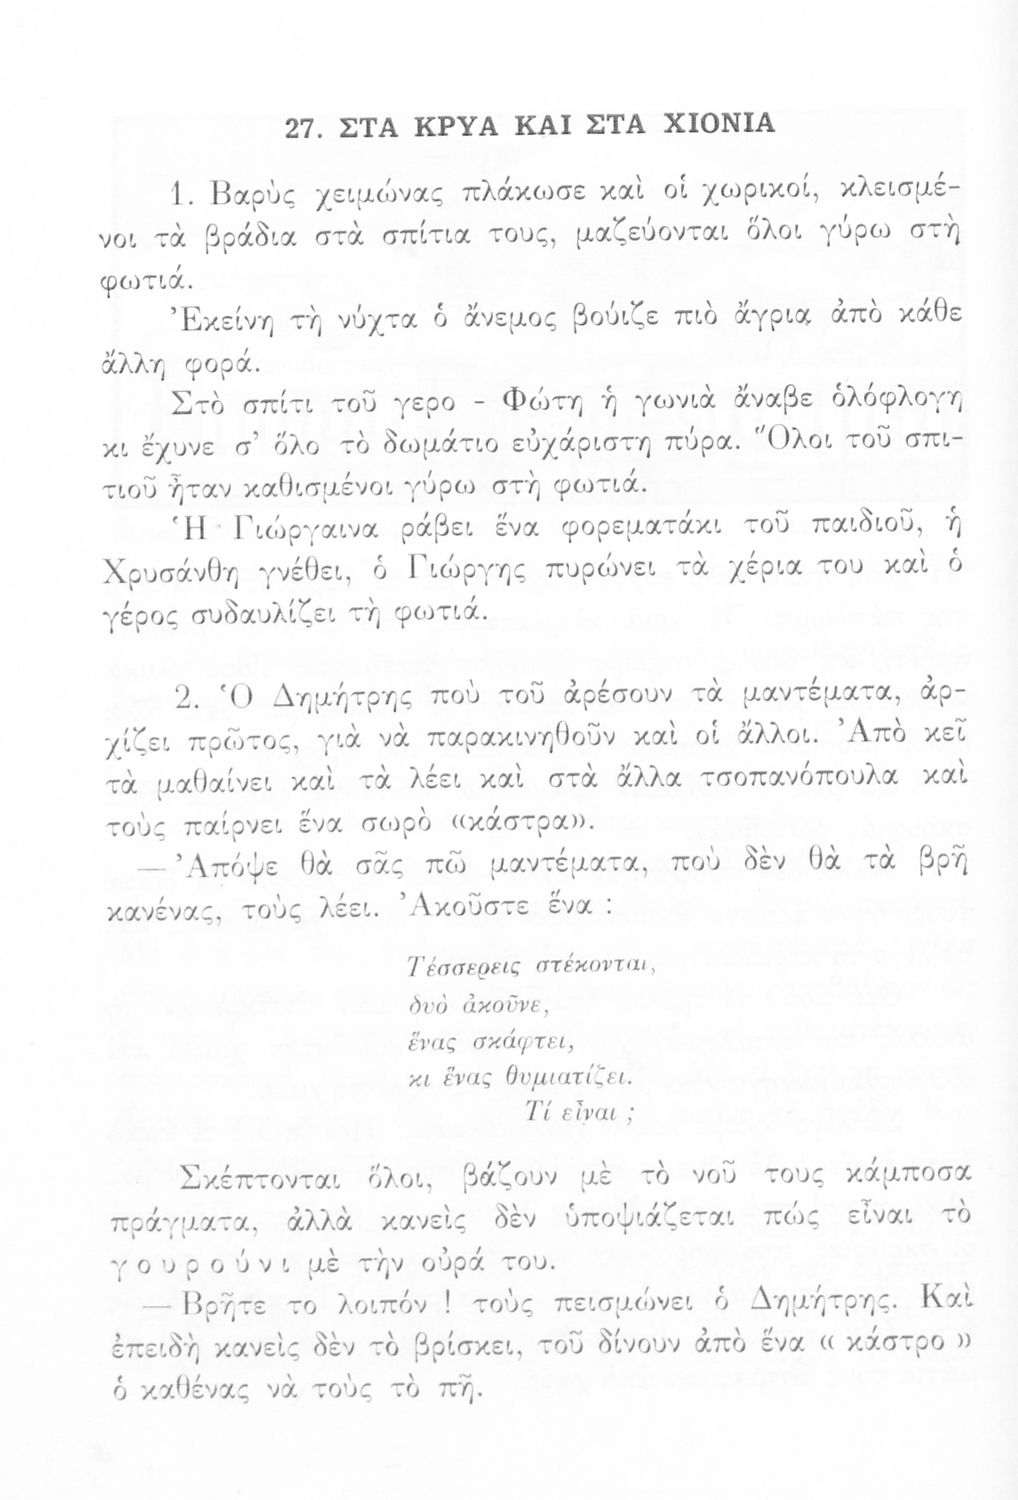 27. ΣΤΑ ΚΡΥΑ ΚΑΙ ΣΤΑ ΧΙΟΝΙΑ
1. Βαρὺς χειμώνας πλάκωσε καὶ οἱ χωρικοί, κλεισμέ-
νοι τὰ βράδια στὰ σπίτια τους, μαζεύονται ὅλοι γύρω στὴ
φωτιά.
Ἐκείνη τὴ νύχτα ὁ ἄνεμος βούιζε πιὸ ἄγρια ἀπὸ κάθε
ἄλλη φορά.
Στὸ σπίτι τοῦ γερο - Φώτη ἡ γωνιὰ ἄναβε ὁλόφλογη
κι ἔχυνε σ’ ὅλο τὸ δωμάτιο εὐχάριστη πύρα. Ὅλοι τοῦ σπι-
τιοῦ ἦταν καθισμένοι γύρω στὴ φωτιά.
Ἡ Γιώργαινα ράβει ἕνα φορεματάκι τοῦ παιδιοῦ, ἡ
Χρυσάνθη γνέθει, ὁ Γιώργης πυρώνει τὰ χέρια του καὶ ὁ
γέρος συδαυλίζει τὴ φωτιά.
2. Ὁ Δημήτρης ποὺ τοῦ ἀρέσουν τὰ μαντέματα, ἀρ-
χίζει πρῶτος, γιὰ νὰ παρακινηθοῦν καὶ οἱ ἄλλοι. Ἀπὸ κεῖ
τὰ μαθαίνει καὶ τὰ λέει καὶ στὰ ἄλλα τσοπανόπουλα καὶ
τοὺς παίρνει ἕνα σωρὸ «κάστρα».
— Ἀπόψε θὰ σᾶς πῶ μαντέματα, ποὺ δὲν θὰ τὰ βρῆ
κανένας, τοὺς λέει. Ἀκοῦστε ἕνα :
Τέσσερεις στέκονται,
δυὸ ἀκοῦνε,
ἕνας σκάφτει,
κι ἕνας θυμιατίζει.
Τί εἶναι ;
Σκέπτονται ὅλοι, βάζουν μὲ τὸ νοῦ τους κάμποσα
πράγματα, ἀλλὰ κανεὶς δὲν ὑποψιάζεται πώς εἶναι τὸ
γ ο υ ρ ο ύ ν ι μὲ τὴν οὐρά του.
— Βρῆτε το λοιπόν ! τοὺς πεισμώνει ὁ Δημήτρης. Καὶ
ἐπειδὴ κανεὶς δὲν τὸ βρίσκει, τοῦ δίνουν ἀπὸ ἕνα « κάστρο »
ὁ καθένας νὰ τοὺς τὸ πῆ.